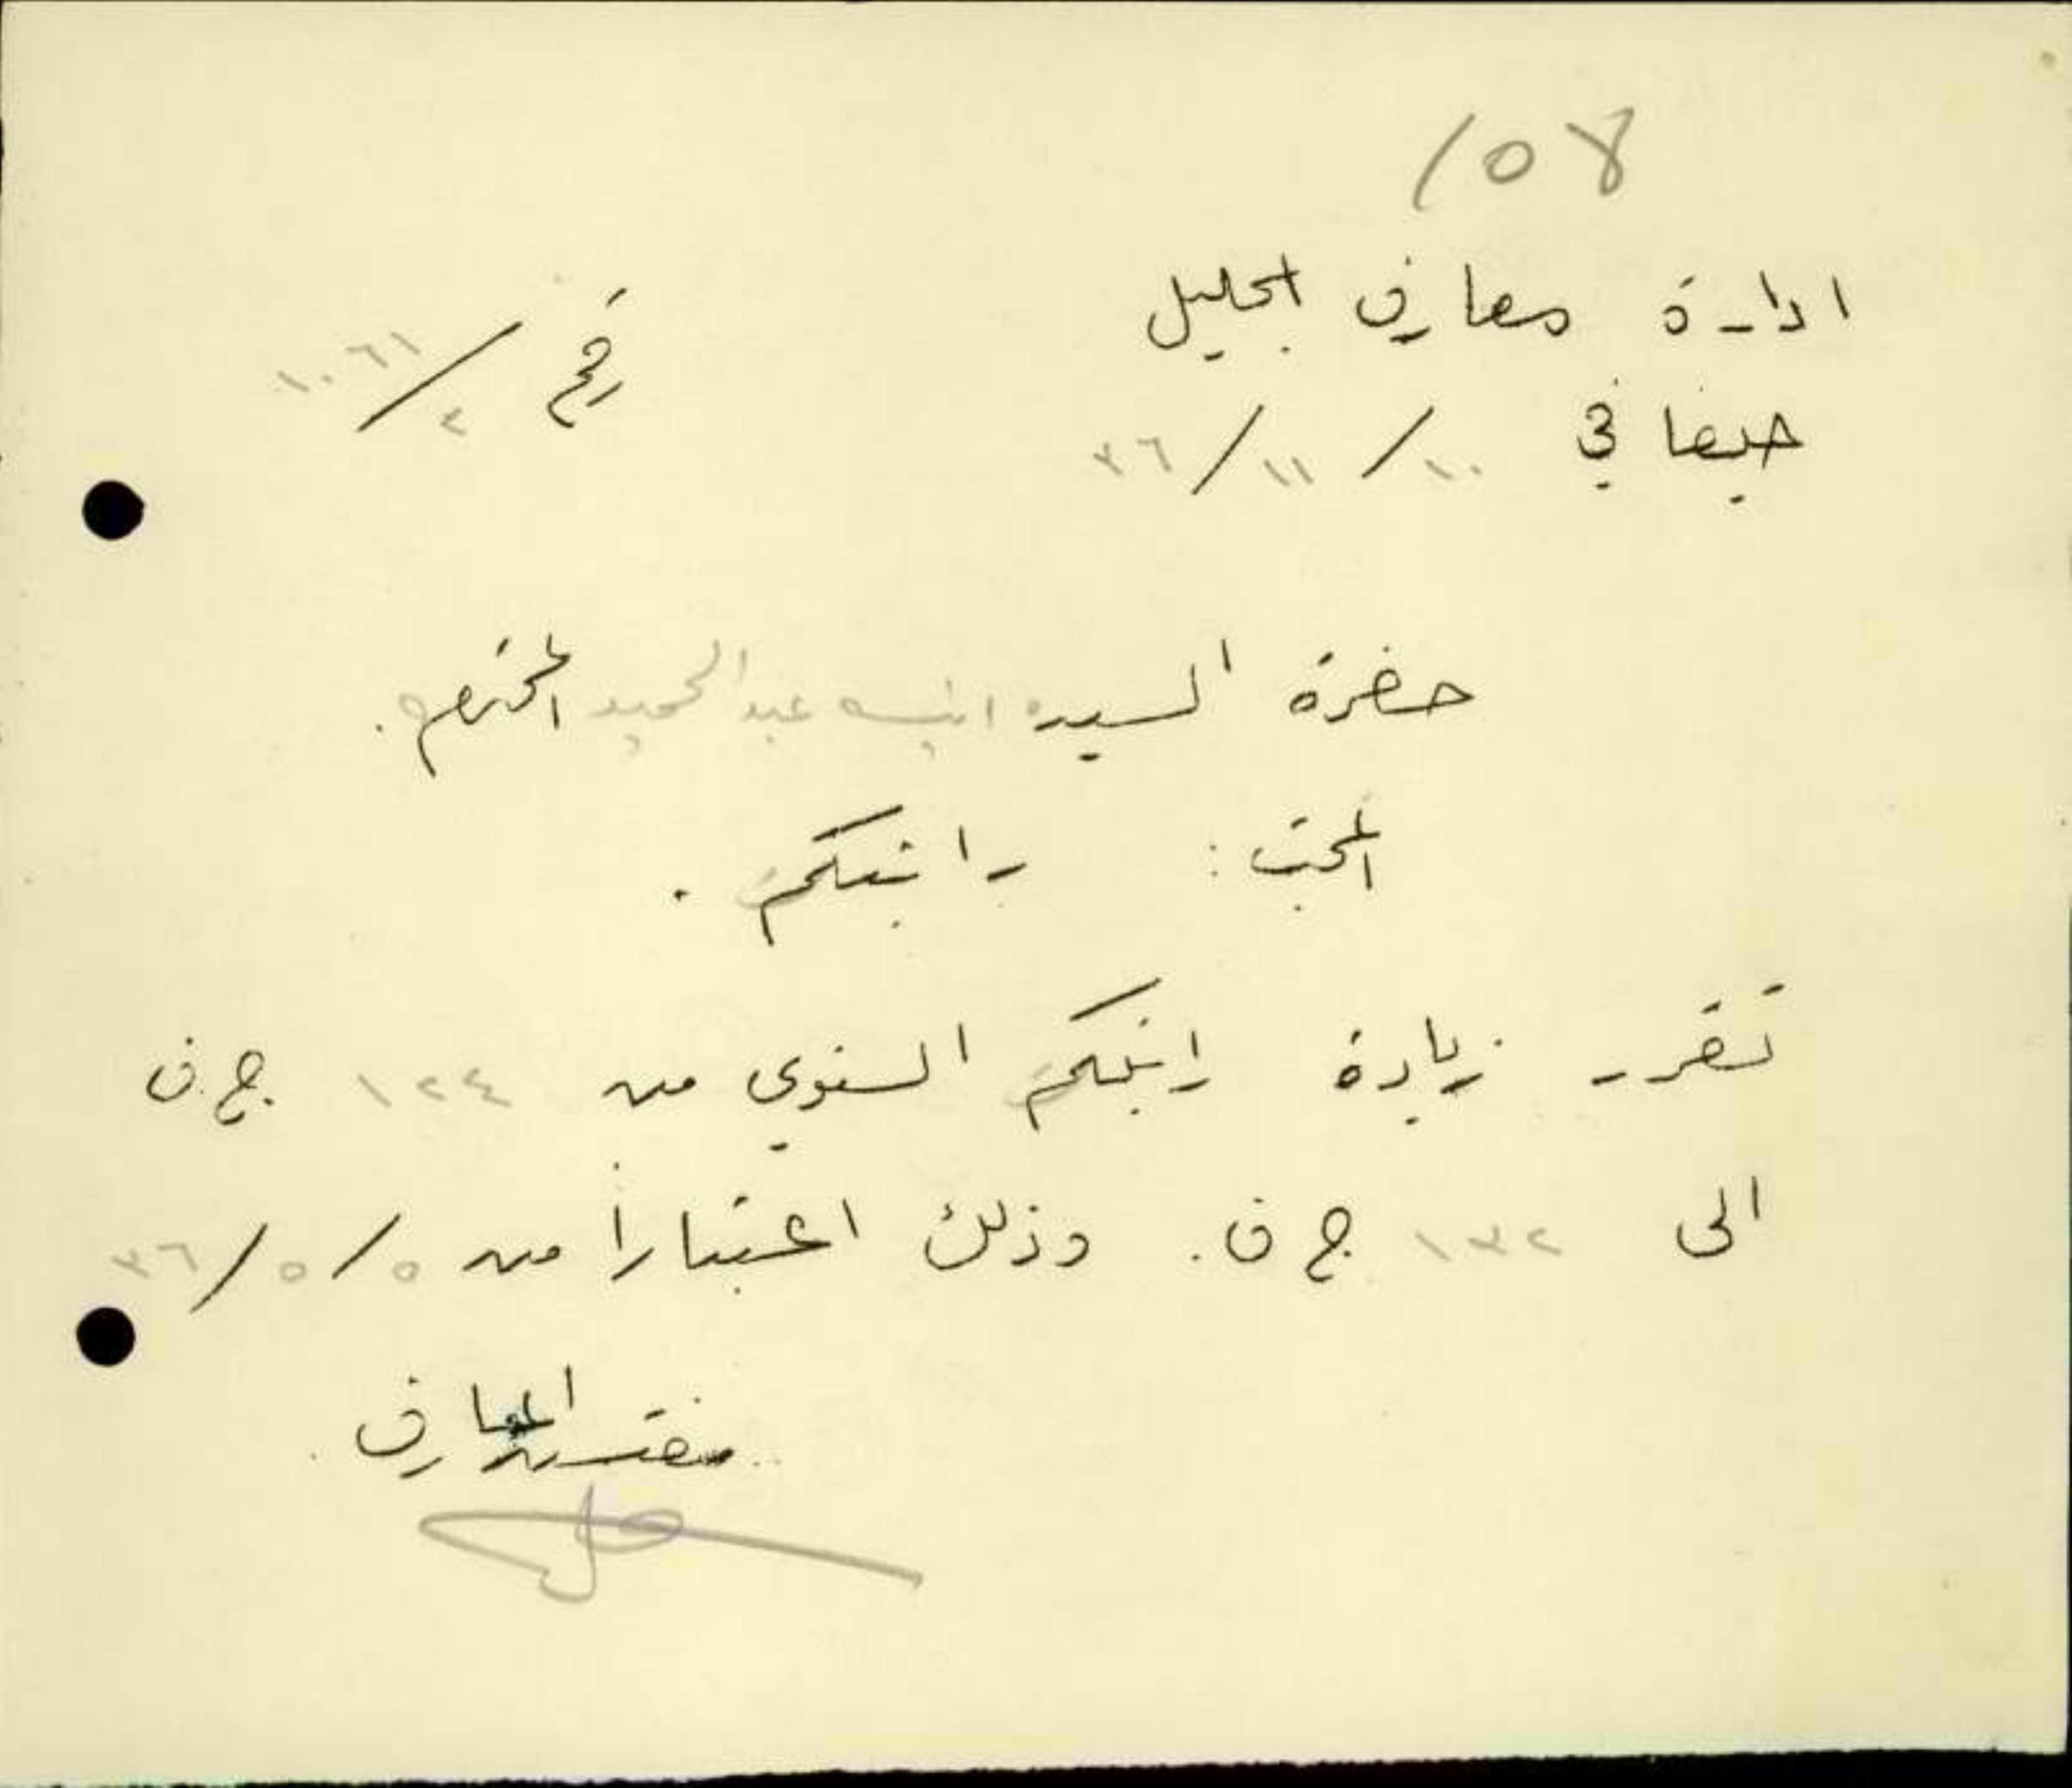 ١٥٨
ادارة معارف الجليل
رقم ١٠٦١/٢
حيفا في ١٠/١١/٣٦
حضرة السيده انيسه عبد الحميد المحترمه.
المبحث: راتبكم.
تقرر زيادة راتبكم السنوي من ١٢٤ ج.ف
الى ١٣٢ ج ف. وذلك اعتباراً من ٥/٥/٣٦
مفتش المعارف